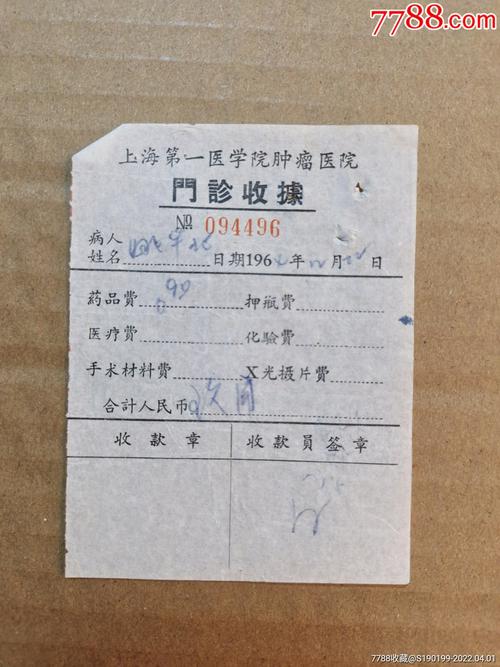 7788.com
上海第一医学院肿瘤医院
門診收據
№ 094496
病人
姓名 日期196 年 月 日
葯品費 押瓶費
医疗費 化驗費
手术材料費 X光摄片費
合計人民币
收款章 收款員签章
7788收藏@S190199-2022.04.01